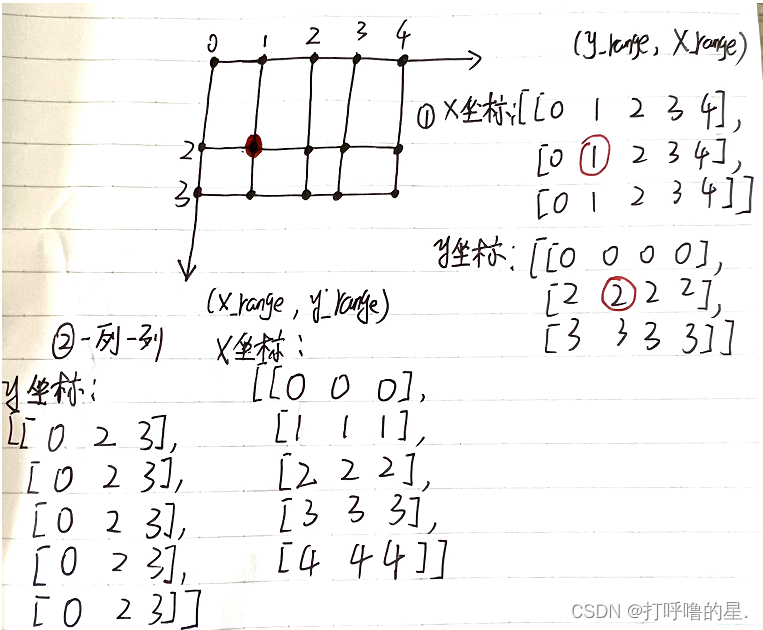 0 1 2 3 4
(y_range, X_range)
① X坐标: [[0 1 2 3 4],
[0 1 2 3 4],
[0 1 2 3 4]]
2
3
y坐标: [[0 0 0 0],
[2 2 2 2],
[3 3 3 3]]
(x_range, y_range)
②一列一列
X坐标:
[[0 0 0],
[1 1 1],
[2 2 2],
[3 3 3],
[4 4 4]]
y坐标:
[[0 2 3],
[0 2 3],
[0 2 3],
[0 2 3],
[0 2 3]]
CSDN @打呼噜的星.